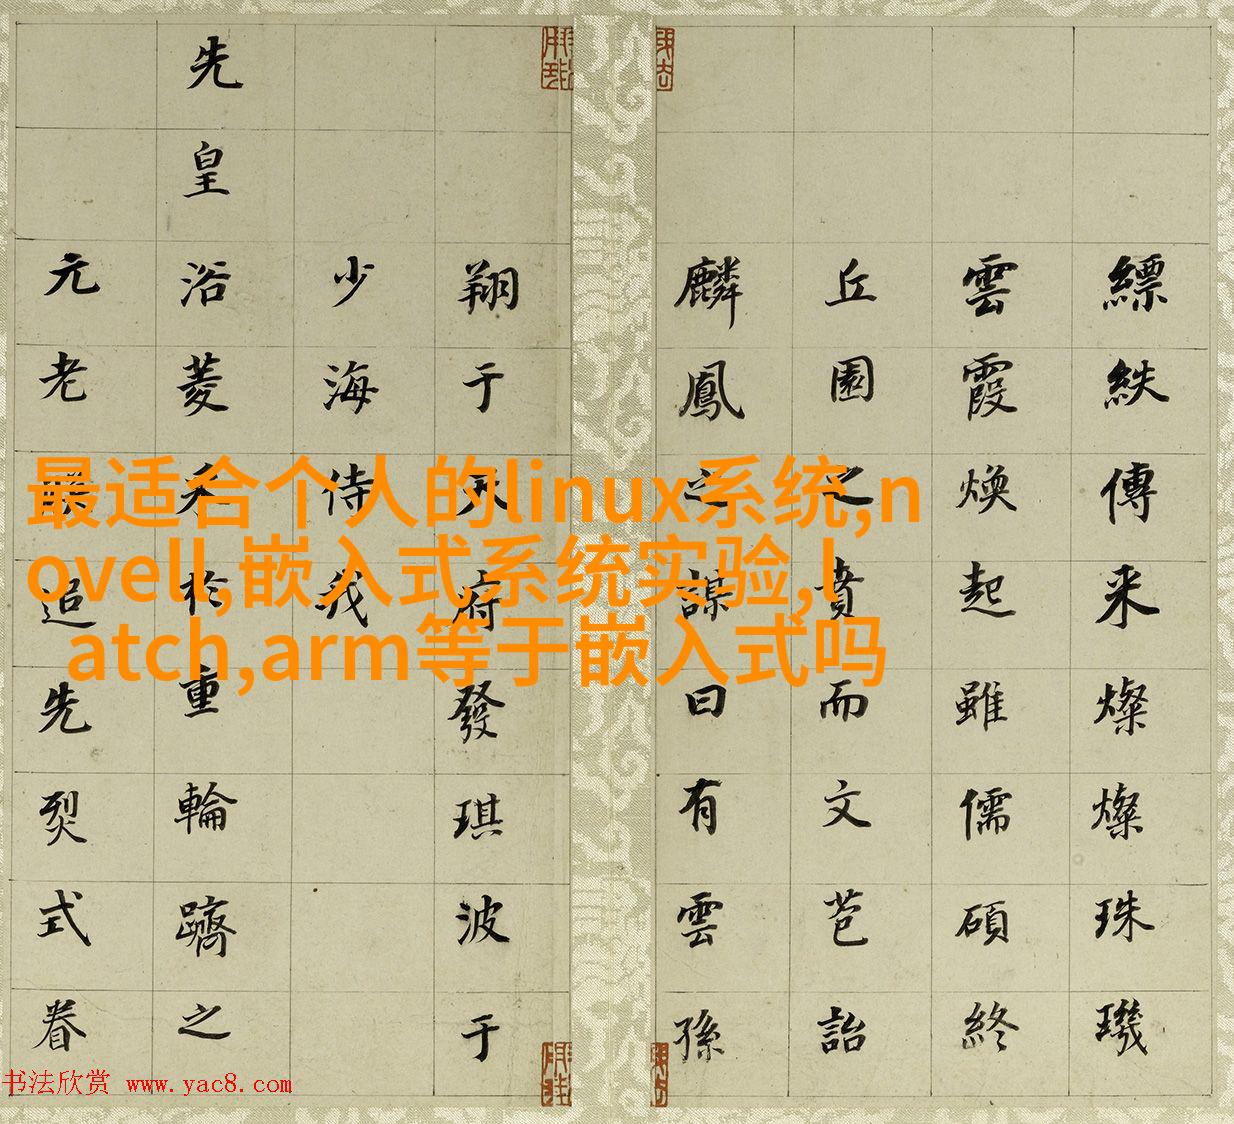 縹紩傳来燦燦珠璣
雲霞煥起雖儒碩終
丘園之賁而文苞詒
麟鳳之謀曰有雲孫
翔于天府發琪波于
少海侍我
先皇浴菱於重輪躋之
元老追先烈式眷
最适合个人的linux系统,n
ovell,嵌入式系统实验,l
atch,arm等于嵌入式吗
书法欣赏 www.yac8.com